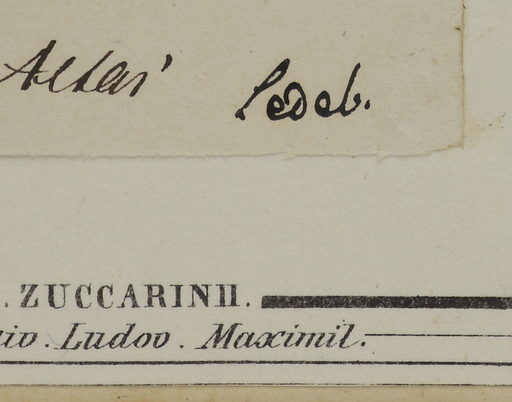 Altai Ledeb.
. ZUCCARINII.
iv. Ludov. Maximil.